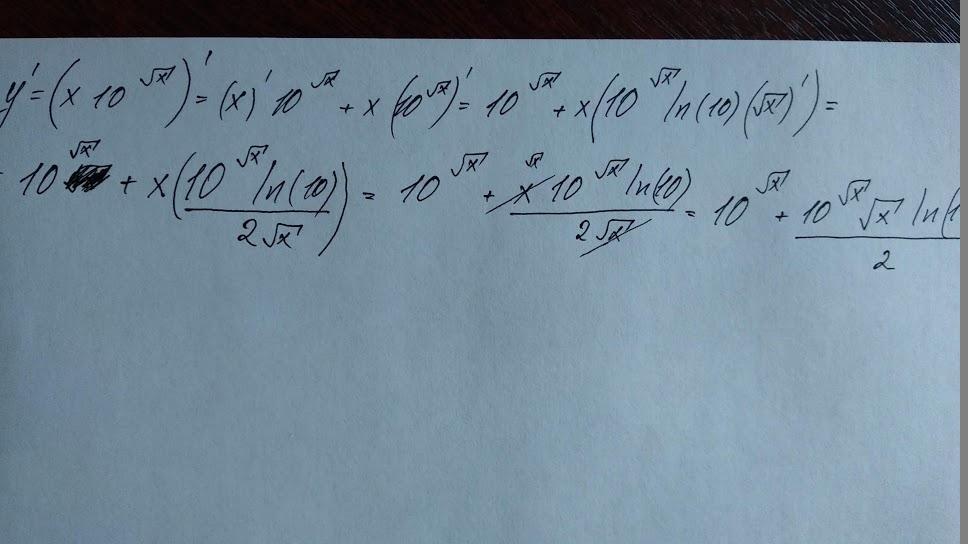 y' = (x 10^√x)' = (x)' 10^√x + x (10^√x)' = 10^√x + x(10^√x ln(10)(√x)') =
10^√x + x(10^√x ln(10) / 2√x) = 10^√x + x^√x 10^√x ln(10) / 2√x = 10^√x + 10^√x √x ln(1 / 2